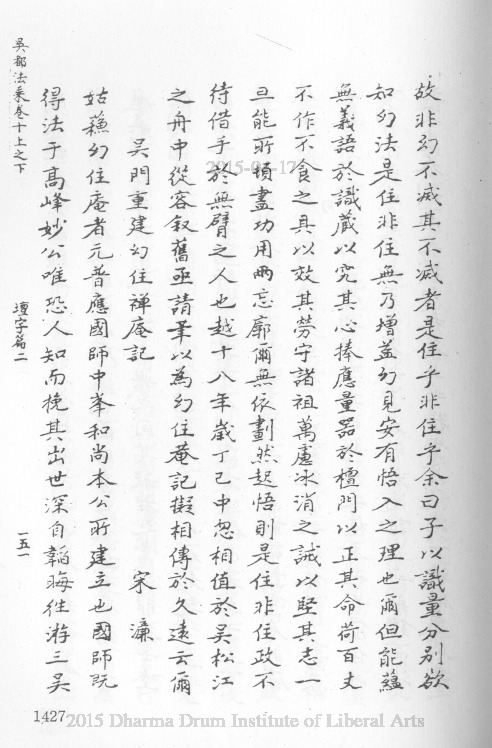 吳都法乘卷十上之下
壇字篇二
一五一
故非幻不滅其不滅者是住乎非住乎余曰子以識量分別欲
知幻法是住非住無乃增益幻見安有悟入之理也爾但能蘊
無義語於識藏以究其心捧應量器於檀門以正其命荷百丈
不作不食之具以效其勞守諸祖萬慮冰消之誡以堅其志一
旦能所頓盡功用兩忘廓爾無依劃然起悟則是住非住政不
待借手於無臂之人也越十八年歲丁巳中忽相值於吳松江
之舟中從容叙舊亟請筆以為幻住菴記擬相傳於久遠云爾
吳門重建幻住禅庵記
宋濂
姑蘓幻住庵者元普應國師中峯和尚本公所建立也國師既
得法于髙峰妙公唯恐人知而挽其出世深自韜晦徃游三吳
1427
2015-04-17
2015 Dharma Drum Institute of Liberal Arts